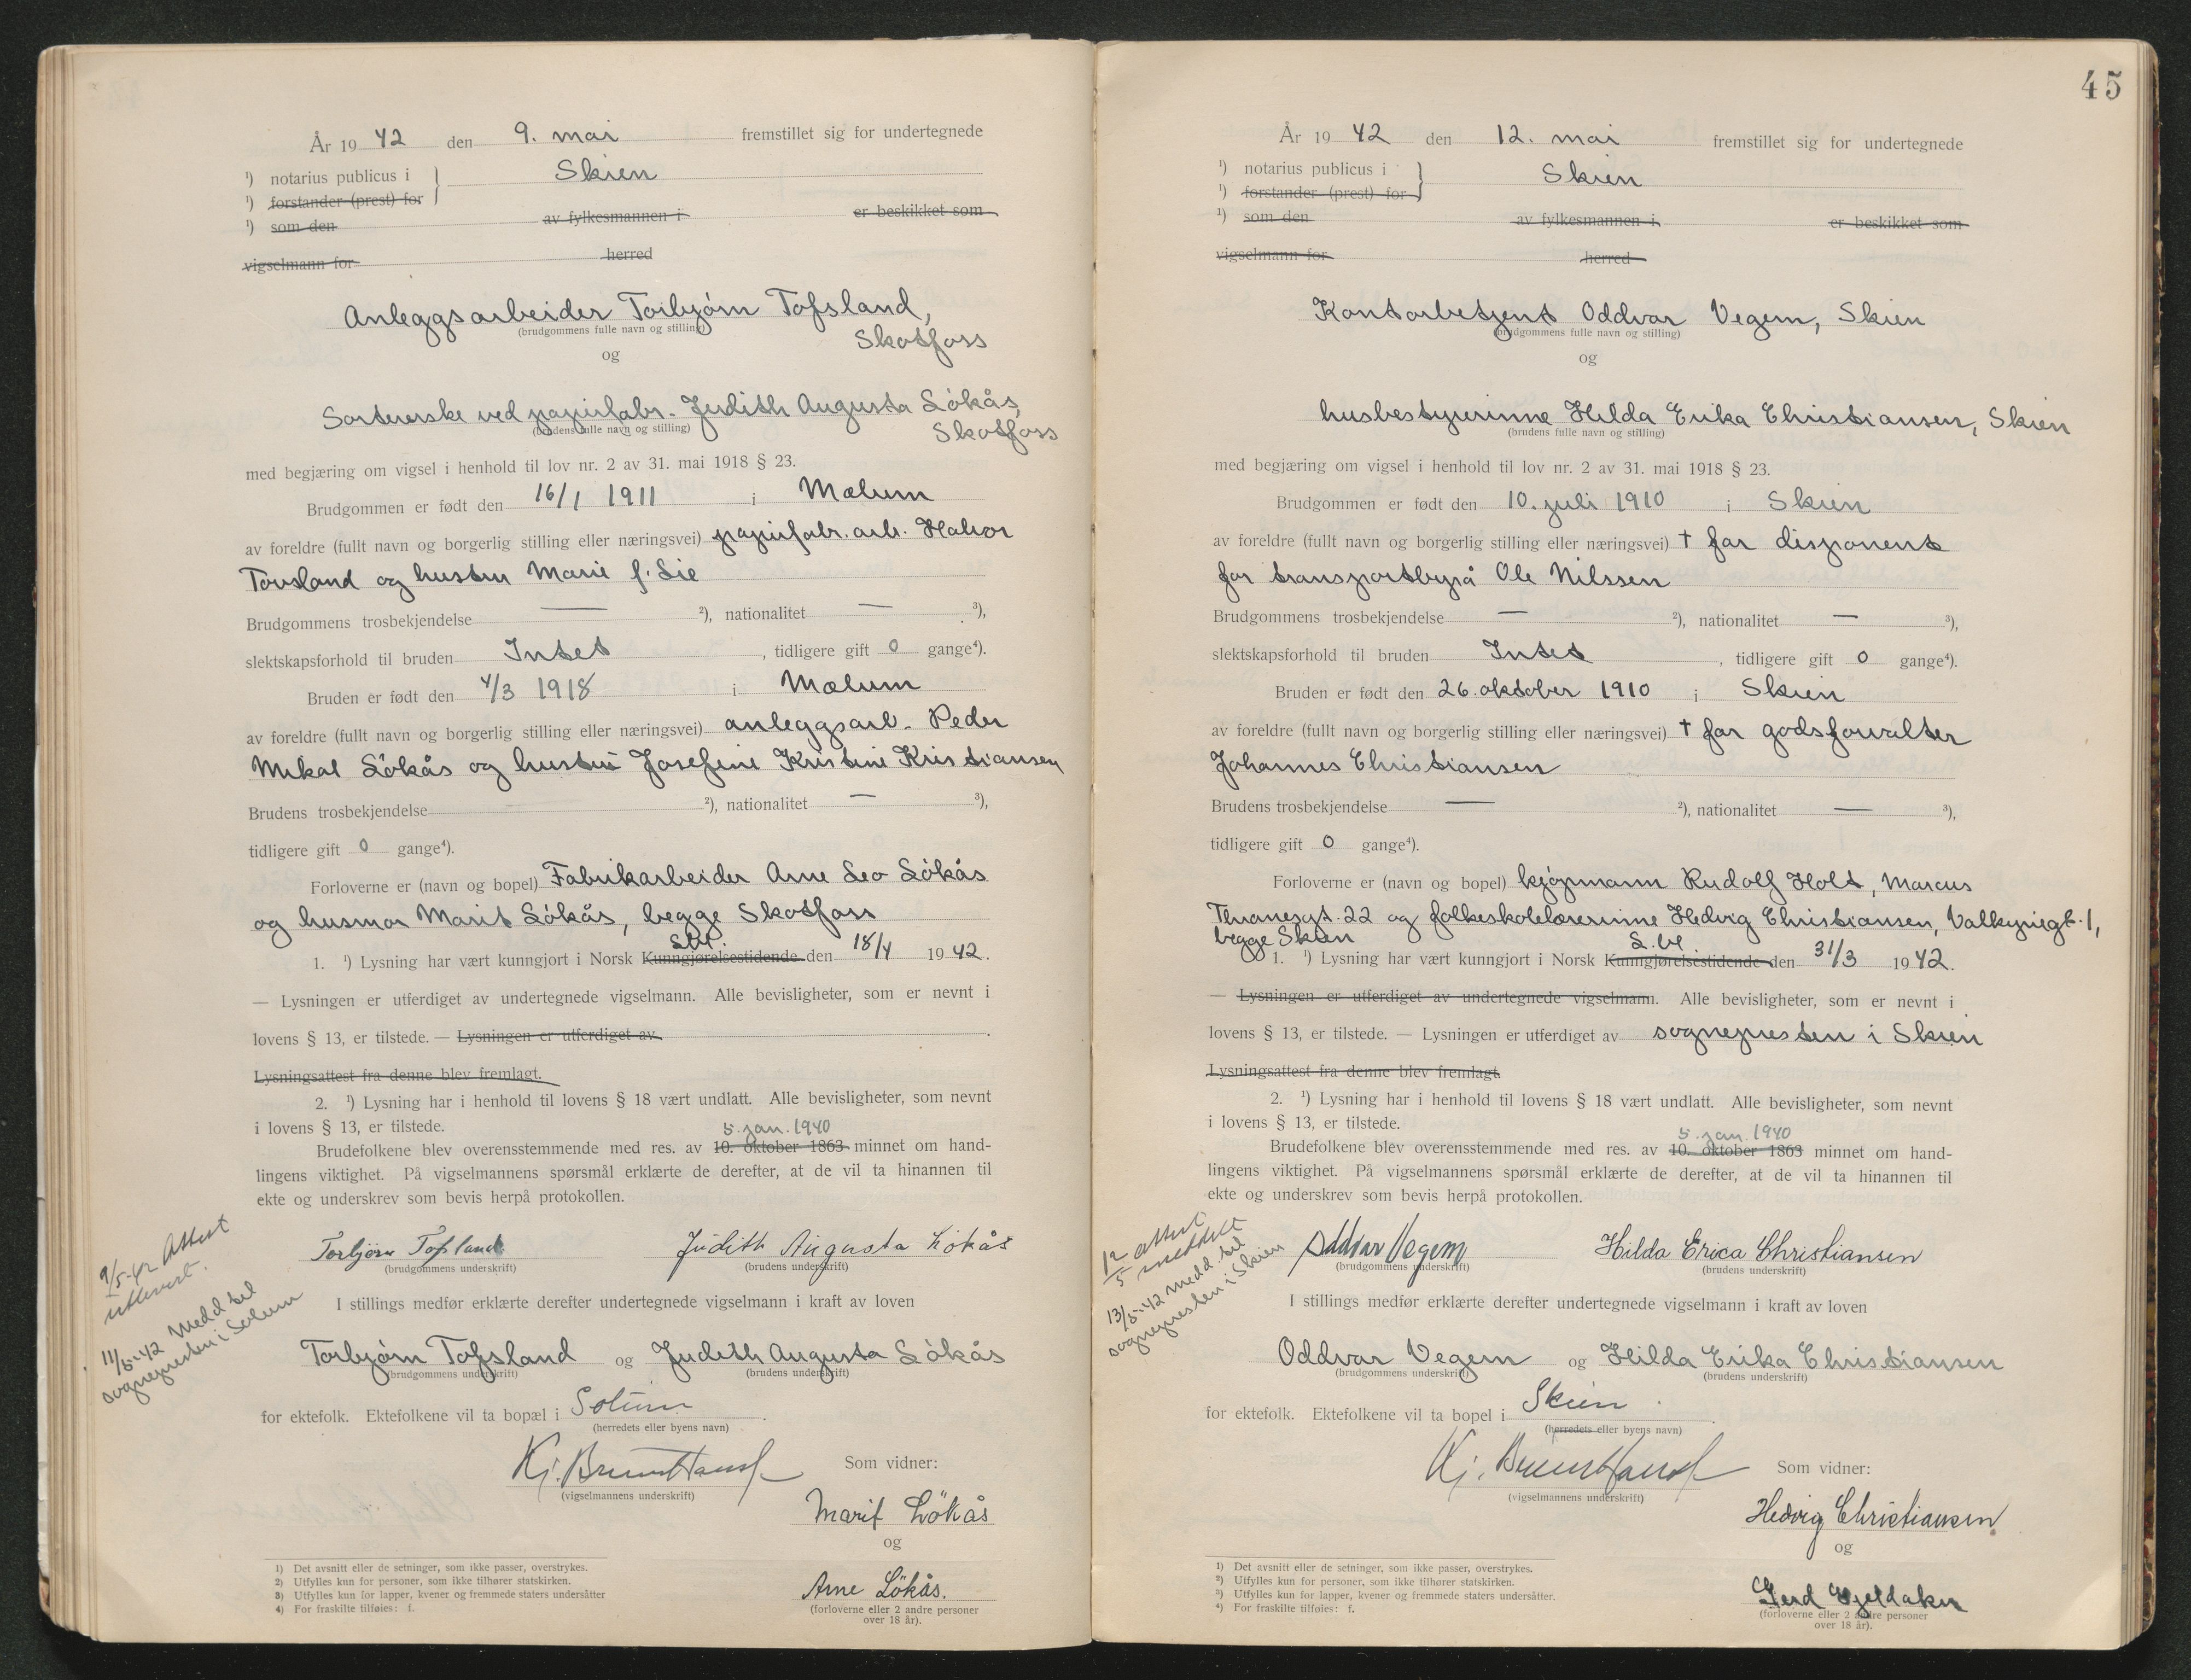 År 19 42 den 9. mai fremstillet sig for undertegnede
¹) notarius publicus i } Skien
¹) forstander (prest) for
¹) som den av fylkesmannen i er beskikket som
vigselmann for herred
Anleggsarbeider Torbjörn Tofsland,
(brudgommens fulle navn og stilling)
Skotfoss
og
Sorterske ved papirfabr. Judith Augusta Lökås,
(brudens fulle navn og stilling)
Skotfoss
med begjæring om vigsel i henhold til lov nr. 2 av 31. mai 1918 § 23.
Brudgommen er født den 16/1 1911 i Mælum
av foreldre (fullt navn og borgerlig stilling eller næringsvei) papirfabr. arb. Halvor
Tovsland og hustru Marie f. Lie
Brudgommens trosbekjendelse — ²), nationalitet — ³),
slektskapsforhold til bruden Intet, tidligere gift 0 gange⁴).
Bruden er født den 4/3 1918 i Mælum
av foreldre (fullt navn og borgerlig stilling eller næringsvei) anleggsarb. Peder
Mikal Lökås og hustru Josefine Kristine Kristiansen
Brudens trosbekjendelse ²), nationalitet — ³),
tidligere gift 0 gange⁴).
Forloverne er (navn og bopel) Fabrikarbeider Arne Leo Lökås
og husmor Marit Lökås, begge Skotfoss
1. ¹) Lysning har vært kunngjort i Norsk Kunngjørelsestidende den 18/4 1942.
— Lysningen er utferdiget av undertegnede vigselmann. Alle bevisligheter, som er nevnt i
lovens § 13, er tilstede. — Lysningen er utferdiget av
Lysningsattest fra denne blev fremlagt.
2. ¹) Lysning har i henhold til lovens § 18 vært undlatt. Alle bevisligheter, som nevnt
i lovens § 13, er tilstede.
5. jan. 1940
Brudefolkene blev overensstemmende med res. av 10. oktober 1863 minnet om hand-
lingens viktighet. På vigselmannens spørsmål erklærte de derefter, at de vil ta hinannen til
ekte og underskrev som bevis herpå protokollen.
9/5-42 Attest
utlevert.
11/5-42 Medd til
sognepresten i Solum
Torbjørn Tofsland Judith Augusta Lökås
(brudgommens underskrift) (brudens underskrift)
I stillings medfør erklærte derefter undertegnede vigselmann i kraft av loven
Torbjörn Tofsland og Judith Augusta Lökås
(brudgommens underskrift) (brudens underskrift)
for ektefolk. Ektefolkene vil ta bopæl i Solum.
(herredets eller byens navn)
Som vidner:
(vigselmannens underskrift)
Marit Lökås
og
Arne Lökås.
(forloverne eller 2 andre personer
over 18 år).
1) Det avsnitt eller de setninger, som ikke passer, overstrykes.
2) Utfylles kun for personer, som ikke tilhører statskirken.
3) Utfylles kun for lapper, kvener og fremmede staters undersåtter
4) For fraskilte tilføies: f.
45
År 19 42 den 12. mai fremstillet sig for undertegnede
¹) notarius publicus i } Skien
¹) forstander (prest) for
¹) som den av fylkesmannen i er beskikket som
vigselmann for herred
Kontorbetjent Oddvar Vegem, Skien
(brudgommens fulle navn og stilling)
og
husbestyrerinne Hilda Erika Christiansen, Skien
(brudens fulle navn og stilling)
med begjæring om vigsel i henhold til lov nr. 2 av 31. mai 1918 § 23.
Brudgommen er født den 10. juli 1910 i Skien
av foreldre (fullt navn og borgerlig stilling eller næringsvei) † far disponent
for transportbyrå Ole Nilssen
Brudgommens trosbekjendelse — ²), nationalitet — ³),
slektskapsforhold til bruden Intet, tidligere gift 0 gange⁴).
Bruden er født den 26. oktober 1910 i Skien
av foreldre (fullt navn og borgerlig stilling eller næringsvei) † far godsforvalter
Johannes Christiansen
Brudens trosbekjendelse — ²), nationalitet — ³),
tidligere gift 0 gange⁴).
Forloverne er (navn og bopel) kjöpmann Rudolf Holt, Marcus
Thranesgt. 22 og folkeskolelærerinne Hedvig Christiansen, Valkyriegt. 1,
begge Skien
1. ¹) Lysning har vært kunngjort i Norsk Kunngjørelsestidende den 31/3 1942.
— Lysningen er utferdiget av undertegnede vigselmann. Alle bevisligheter, som er nevnt i
lovens § 13, er tilstede. — Lysningen er utferdiget av sognepresten i Skien
Lysningsattest fra denne blev fremlagt.
2. ¹) Lysning har i henhold til lovens § 18 vært undlatt. Alle bevisligheter, som nevnt
i lovens § 13, er tilstede.
5. jan. 1940
Brudefolkene blev overensstemmende med res. av 10. oktober 1863 minnet om hand-
lingens viktighet. På vigselmannens spørsmål erklærte de derefter, at de vil ta hinannen til
ekte og underskrev som bevis herpå protokollen.
12/5 attest
meddelt
13/5-42 medd. til
sognepresten i Skien
Oddvar Vegem Hilda Erica Christiansen
(brudgommens underskrift) (brudens underskrift)
I stillings medfør erklærte derefter undertegnede vigselmann i kraft av loven
Oddvar Vegem og Hilda Erika Christiansen
(brudgommens underskrift) (brudens underskrift)
for ektefolk. Ektefolkene vil ta bopel i Skien.
(herredets eller byens navn)
Som vidner:
(vigselmannens underskrift)
Hedvig Christiansen
og
Gerd
(forloverne eller 2 andre personer
over 18 år).
¹) Det avsnitt eller de setninger, som ikke passer, overstrykes.
²) Utfylles kun for personer, som ikke tilhører statskirken.
³) Utfylles kun for lapper, kvener og fremmede staters undersåtter.
⁴) For fraskilte tilføies: f.